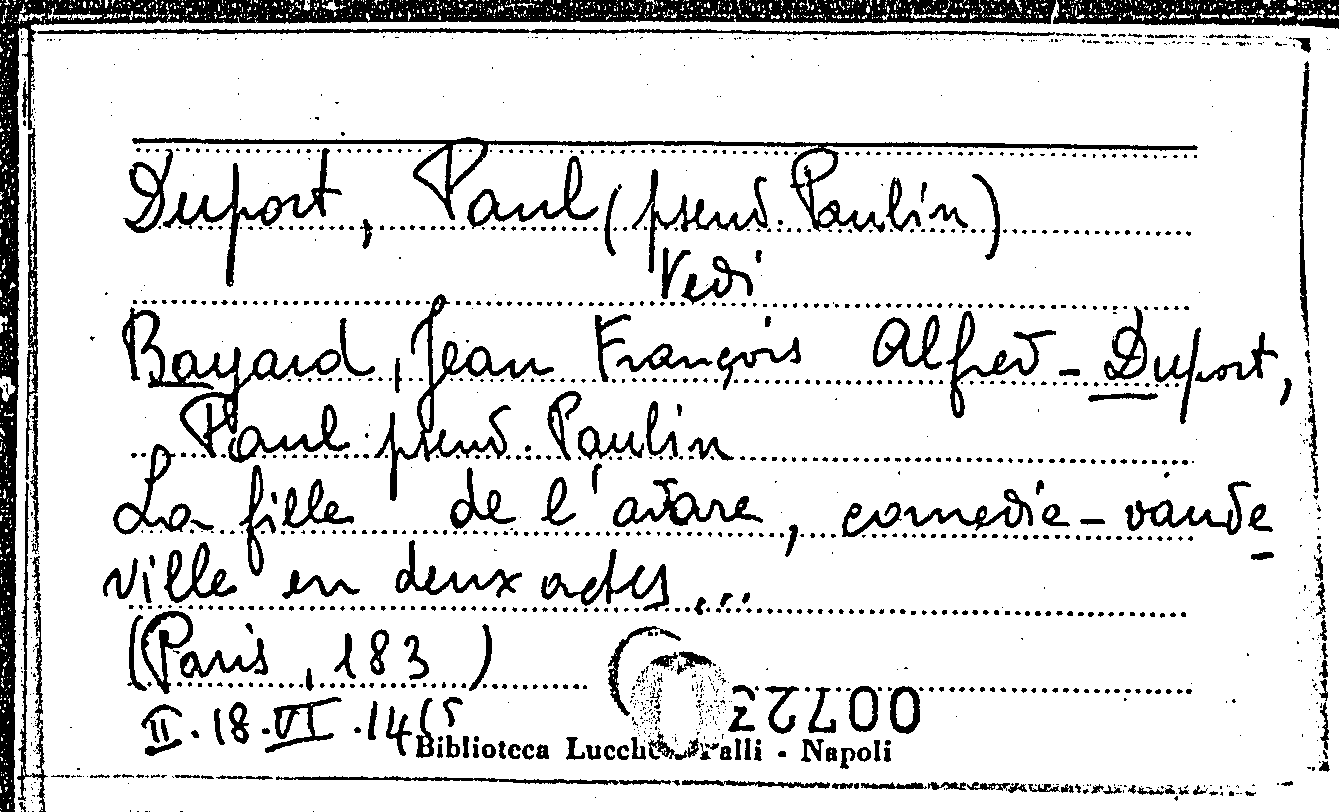 Duport, Paul (pseud. Paulin)
Vedi
Bayard, Jean François Alfred - Duport,
Paul pseud. Paulin
La fille de l'avare, comedie - vaude
ville en deux actes...
(Paris, 183 )
II. 18. VI. 14(5
00723
Biblioteca Lucchesi Palli - Napoli